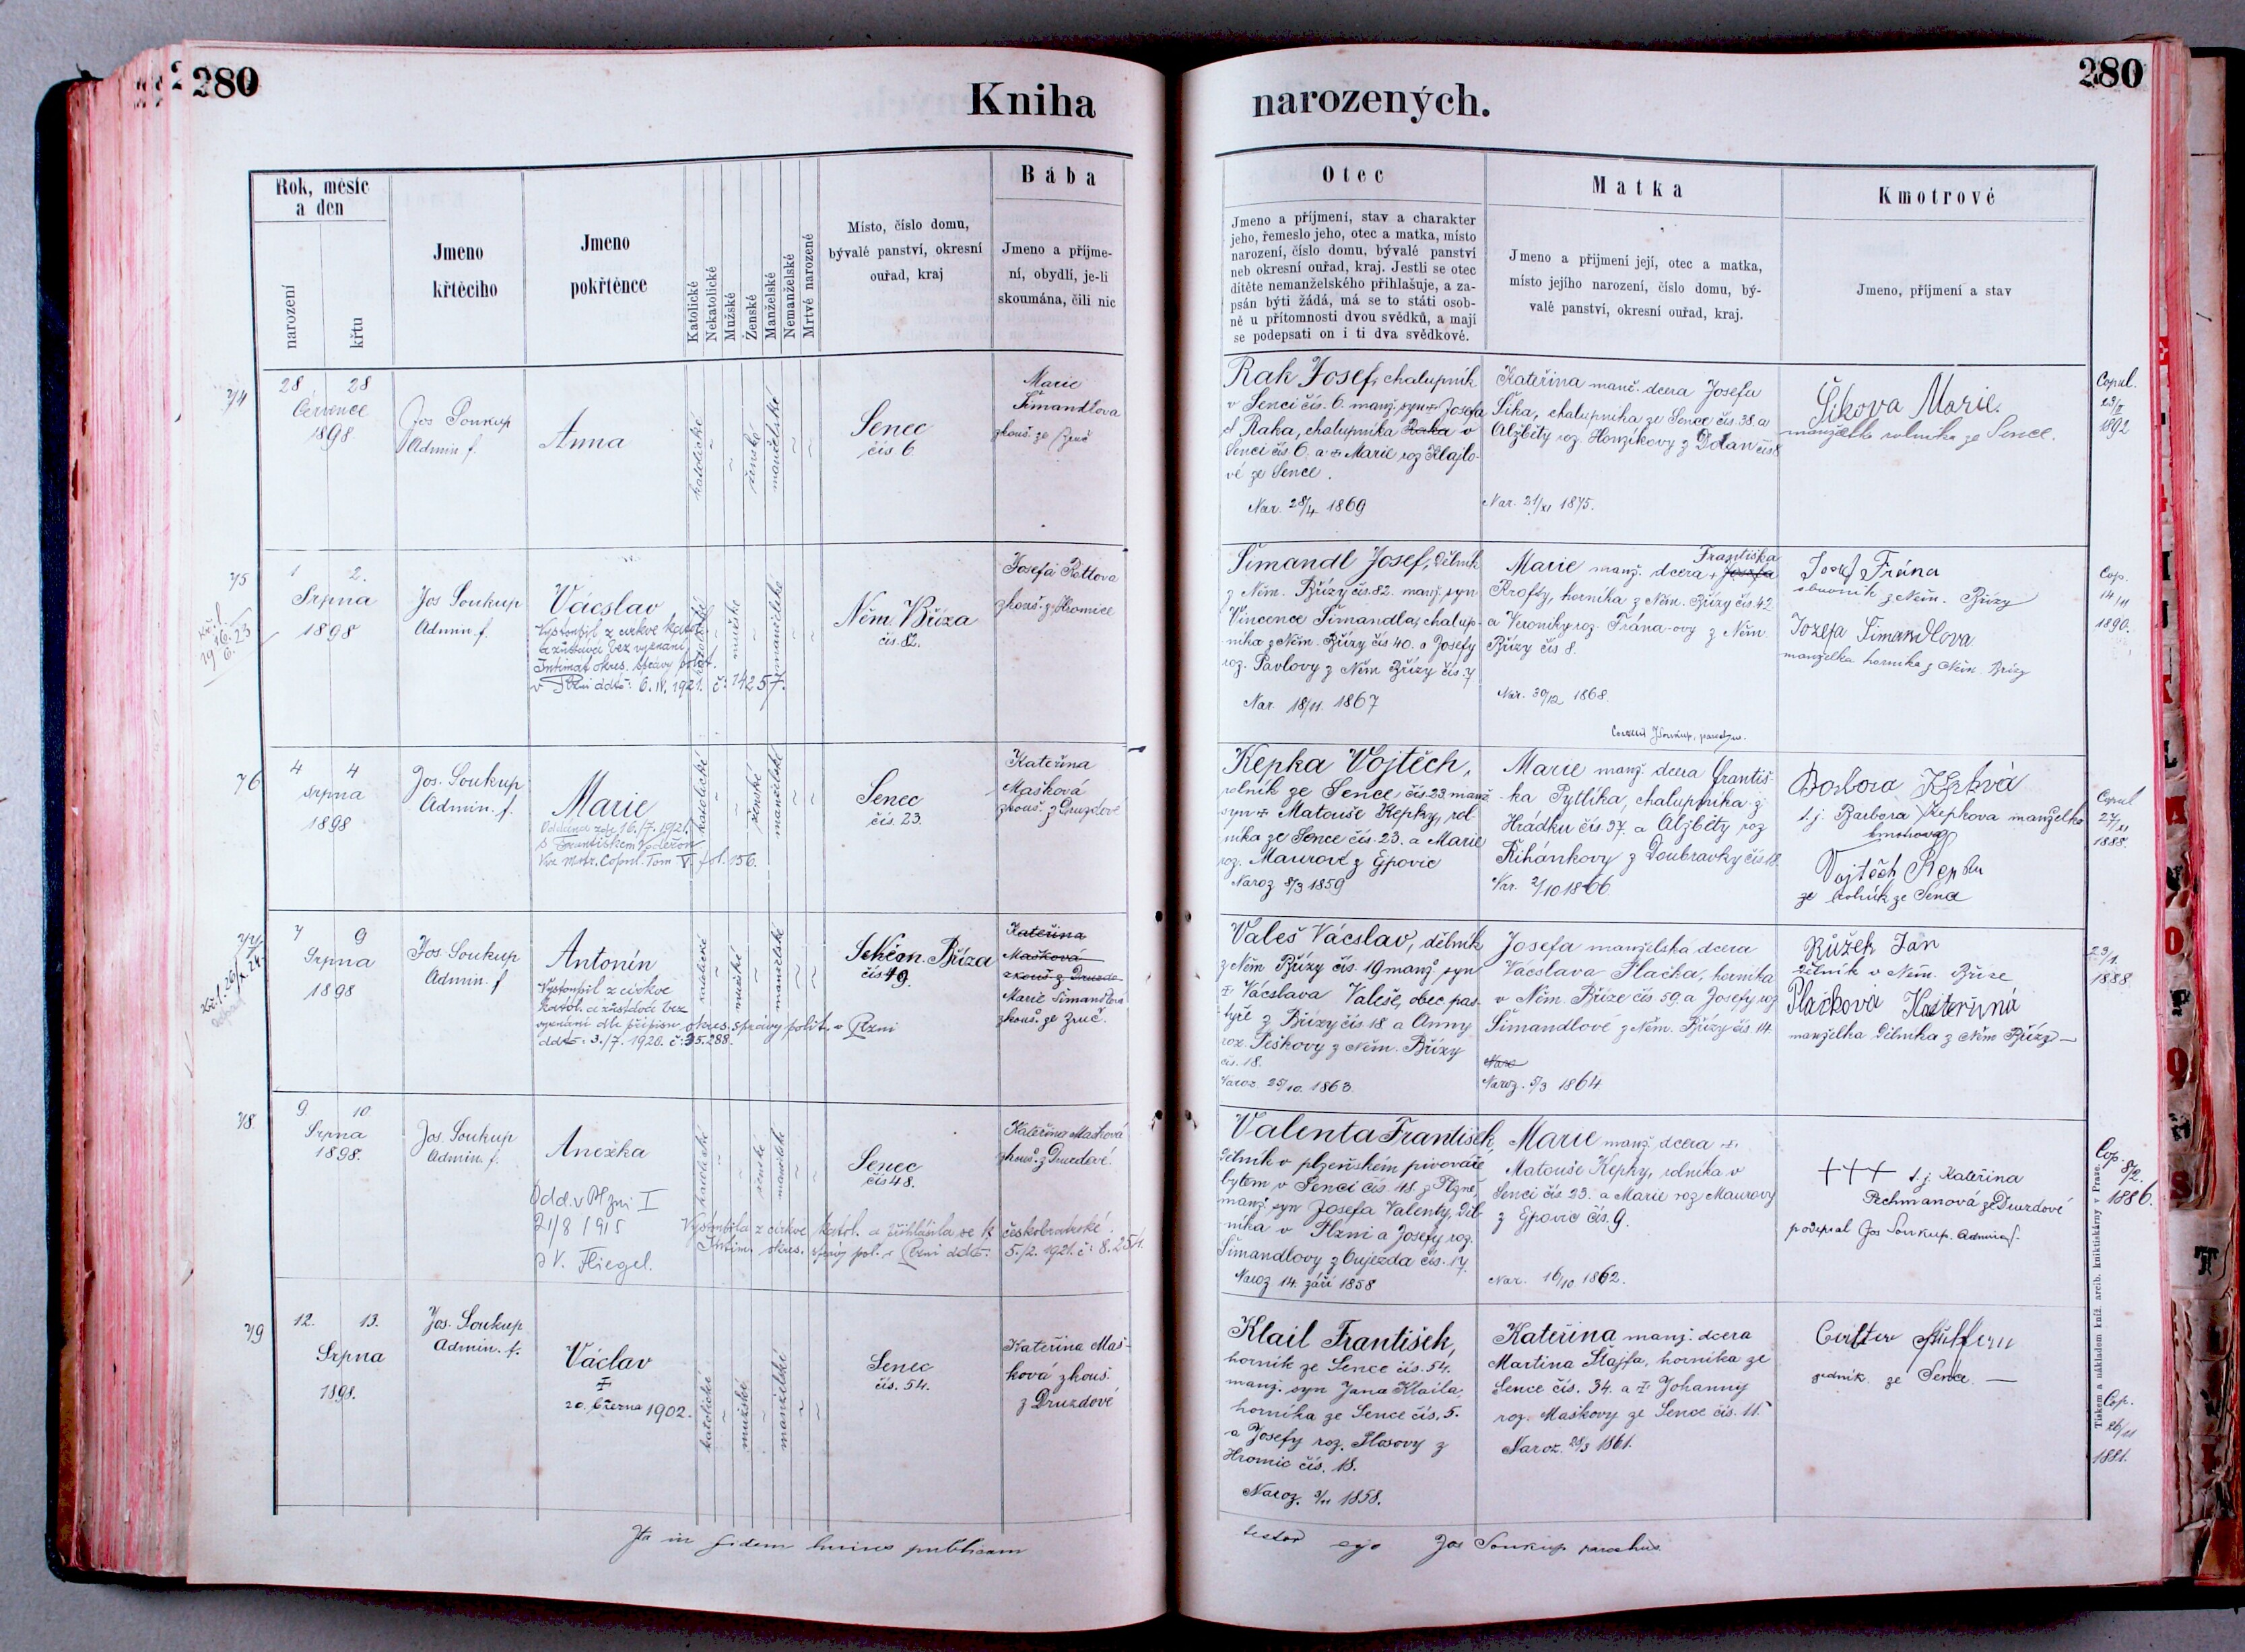 280
Kniha
narozených.
280
Rok, měsíc
a den
narození
křtu
Jmeno
křtěcího
Jmeno
pokřtěnce
Katolické
Nekatolické
Mužské
Ženské
Manželské
Nemanželské
Mrtvé narozené
Místo, číslo domu,
bývalé panství, okresní
ouřad, kraj
Bába
Jmeno a příjme-
ní, obydlí, je-li
skoumána, čili nic
Otec
Jmeno a příjmení, stav a charakter
jeho, řemeslo jeho, otec a matka, místo
narození, číslo domu, bývalé panství
neb okresní ouřad, kraj. Jestli se otec
dítěte nemanželského přihlašuje, a za-
psán býti žádá, má se to státi osob-
ně u přítomnosti dvou svědků, a mají
se podepsati on i ti dva svědkové.
Matka
Jmeno a přijmení její, otec a matka,
místo jejího narození, číslo domu, bý-
valé panství, okresní ouřad, kraj.
Kmotrové
Jmeno, příjmení a stav
74
28 28
Července
1898
Jos Soukup
Admin. f.
Anna
katolické
ženské
manželské
Senec
čís 6.
Marie
Šimandlova
zkouš. ze Zruč
Rak Josef, chalupník
v Senci čís. 6. manž. syn Josefa
Raka, chalupníka Raka v
Senci čís. 6. a Marie roz Klajlo-
vé ze Sence.
Nar. 28/4 1869
Kateřina manž. dcera Josefa
Šika, chalupníka ze Sence čís. 38. a
Alžběty roz Honzíkovy z Dolan čís 8
Nar. 21/XI 1875.
Šikova Marie.
manželka rolníka ze Sence.
Copul.
23/II
1892
75
1 2.
Srpna
1898
Jos Soukup
Admin. f.
Václav
Vystoupil z cirkve kato.
a zůstává bez vyznání,
Intimat okres. správy polit.
v Plzni ddto: 6. IV. 1921. č. 14257.
katolické
mužské
manželské
Něm. Bříza
čís. 82.
Josefa Rottova
zkouš. z Hromice
Šimandl Josef, dělník
z Něm. Břízy čís. 82. manž. syn
Vincence Šimandla, chalup-
níka z Něm. Břízy čís 40. a Josefy
roz. Pavlovy z Něm Břízy čís. 7
Nar. 18/11. 1867
Františka
Marie manž. dcera + Josefa
Krofty, horníka z Něm. Břízy čís. 42
a Veroniky roz. Frána-ovy z Něm.
Břízy čís 8.
Nar. 30/12 1868.
Josef Frána
obuvník z Něm. Břízy
Jozefa Šimandlova
manželka horníka z Něm. Břízy
Cop.
14/11
1890.
76
4 4
Srpna
1898
Jos. Soukup
Admin. f.
Marie
Oddána zde 16./7. 1921.
s Františkem
Viz Matr. Copul. Tom V. fol. 156.
katolické
ženské
manželské
Senec
čís. 23.
Kateřina
Mašková
zkouš. z Druzdové
Kepka Vojtěch,
rolník ze Sence čís. 23. manž.
syn + Matouše Kepky, rol-
níka ze Sence čís. 23. a Marie
roz. Maurové z Ejpovic
Naroz 8/3 1859
Marie manž. dcera Františ-
ka Pytlíka, chalupníka z
Hrádku čís 37. a Alžběty roz
Řihánkovy z Doubravky čís 18.
Nar. 2/10 1866
t.j. Barbora Kepkova manželka
Vojtěch Kepka
rolník ze Sence
Copul
27/XI
1888.
77
7 9
Srpna
1898
Jos. Soukup
Admin. f
Antonín
Vystoupil z církve
katol. a zůstává bez
vyznání dle přípisu okres. správy polit. v Plzni
ddto: 3./7. 1920. č: 35.288.
katolické
mužské
manželské
Něm. Bříza
čís 19.
Kateřina
Mašková
zkouš z Druzdo-
Marie Šimandlova
zkouš. ze Zruč.
Valeš Václav, dělník
z Něm Břízy čís. 19 manž. syn
+ Václava Valeše, obec. pas-
týře z Břízy čís 18 a Anny
roz. Peškovy z Něm. Břízy
čís. 18.
Naroz 25/10. 1863.
Josefa manželská dcera
Václava Plačka, horníka
v Něm. Bříze čís 59. a Josefy roz
Šimandlové z Něm. Břízy čís. 14.
Naro
Naroz. 5/3 1864
Růžek Jan
dělník v Něm. Bříze
Plačková Kateřina
manželka dělníka z Něm Břízy —
23/1.
1888
78.
9. 10.
Srpna
1898.
Jos. Soukup
Admin. f.
Anežka
Odd. v Plzni I
21/8 1915
s V. Fliegel.
Vystoupila z cirkve katol. a přihlásila se k českobratrské.
Intim. okres. správy pol. v Plzni ddto: 5./2. 1921. č: 8.251.
katolické
ženské
manželské
Senec
čís 48.
Kateřina Mašková
zkouš. z Druzdové.
Valenta František,
dělník v plzeňském pivováře,
bytem v Senci čís. 48. z Plzně,
manž. syn Josefa Valenty, děl-
níka v Plzni a Josefy roz.
Šimandlovy z Oujezda čís. 17.
Naroz 14. září 1858
Marie manž. dcera +
Matouše Kepky, rolníka v
Senci čís. 23. a Marie roz Maurovy
z Ejpovic čís. 9.
Nar. 16/10 1862.
+++ t.j. Kateřina
Pechmanová ze Druzdové
podepsal Jos Soukup. Admin f.
Cop.
8/2.
1886.
79
12. 13.
Srpna
1898.
Jos. Soukup
Admin. f.
Václav
+
20. března 1902.
katolické
mužské
manželské
Senec
čís. 54.
Kateřina Maš-
ková zkouš.
z Druzdové
Klail František,
horník ze Sence čís. 54.
manž. syn Jana Klaila,
horníka ze Sence čís. 5.
a Josefy roz. Hosovy z
Hromic čís. 18.
Naroz. 9/11 1858.
Kateřina manž. dcera
Martina Štajfa, horníka ze
Sence čís. 34. a + Johanny
roz. Maškovy ze Sence čís. 11.
Naroz. 28/3 1861.
ze Sence —
Cop.
26/11
1881.
Tiskem a nákladem kníž. arcib. knihtiskárny v Praze.
Ita in fidem publicam
testor ego Jos Soukup parochus.